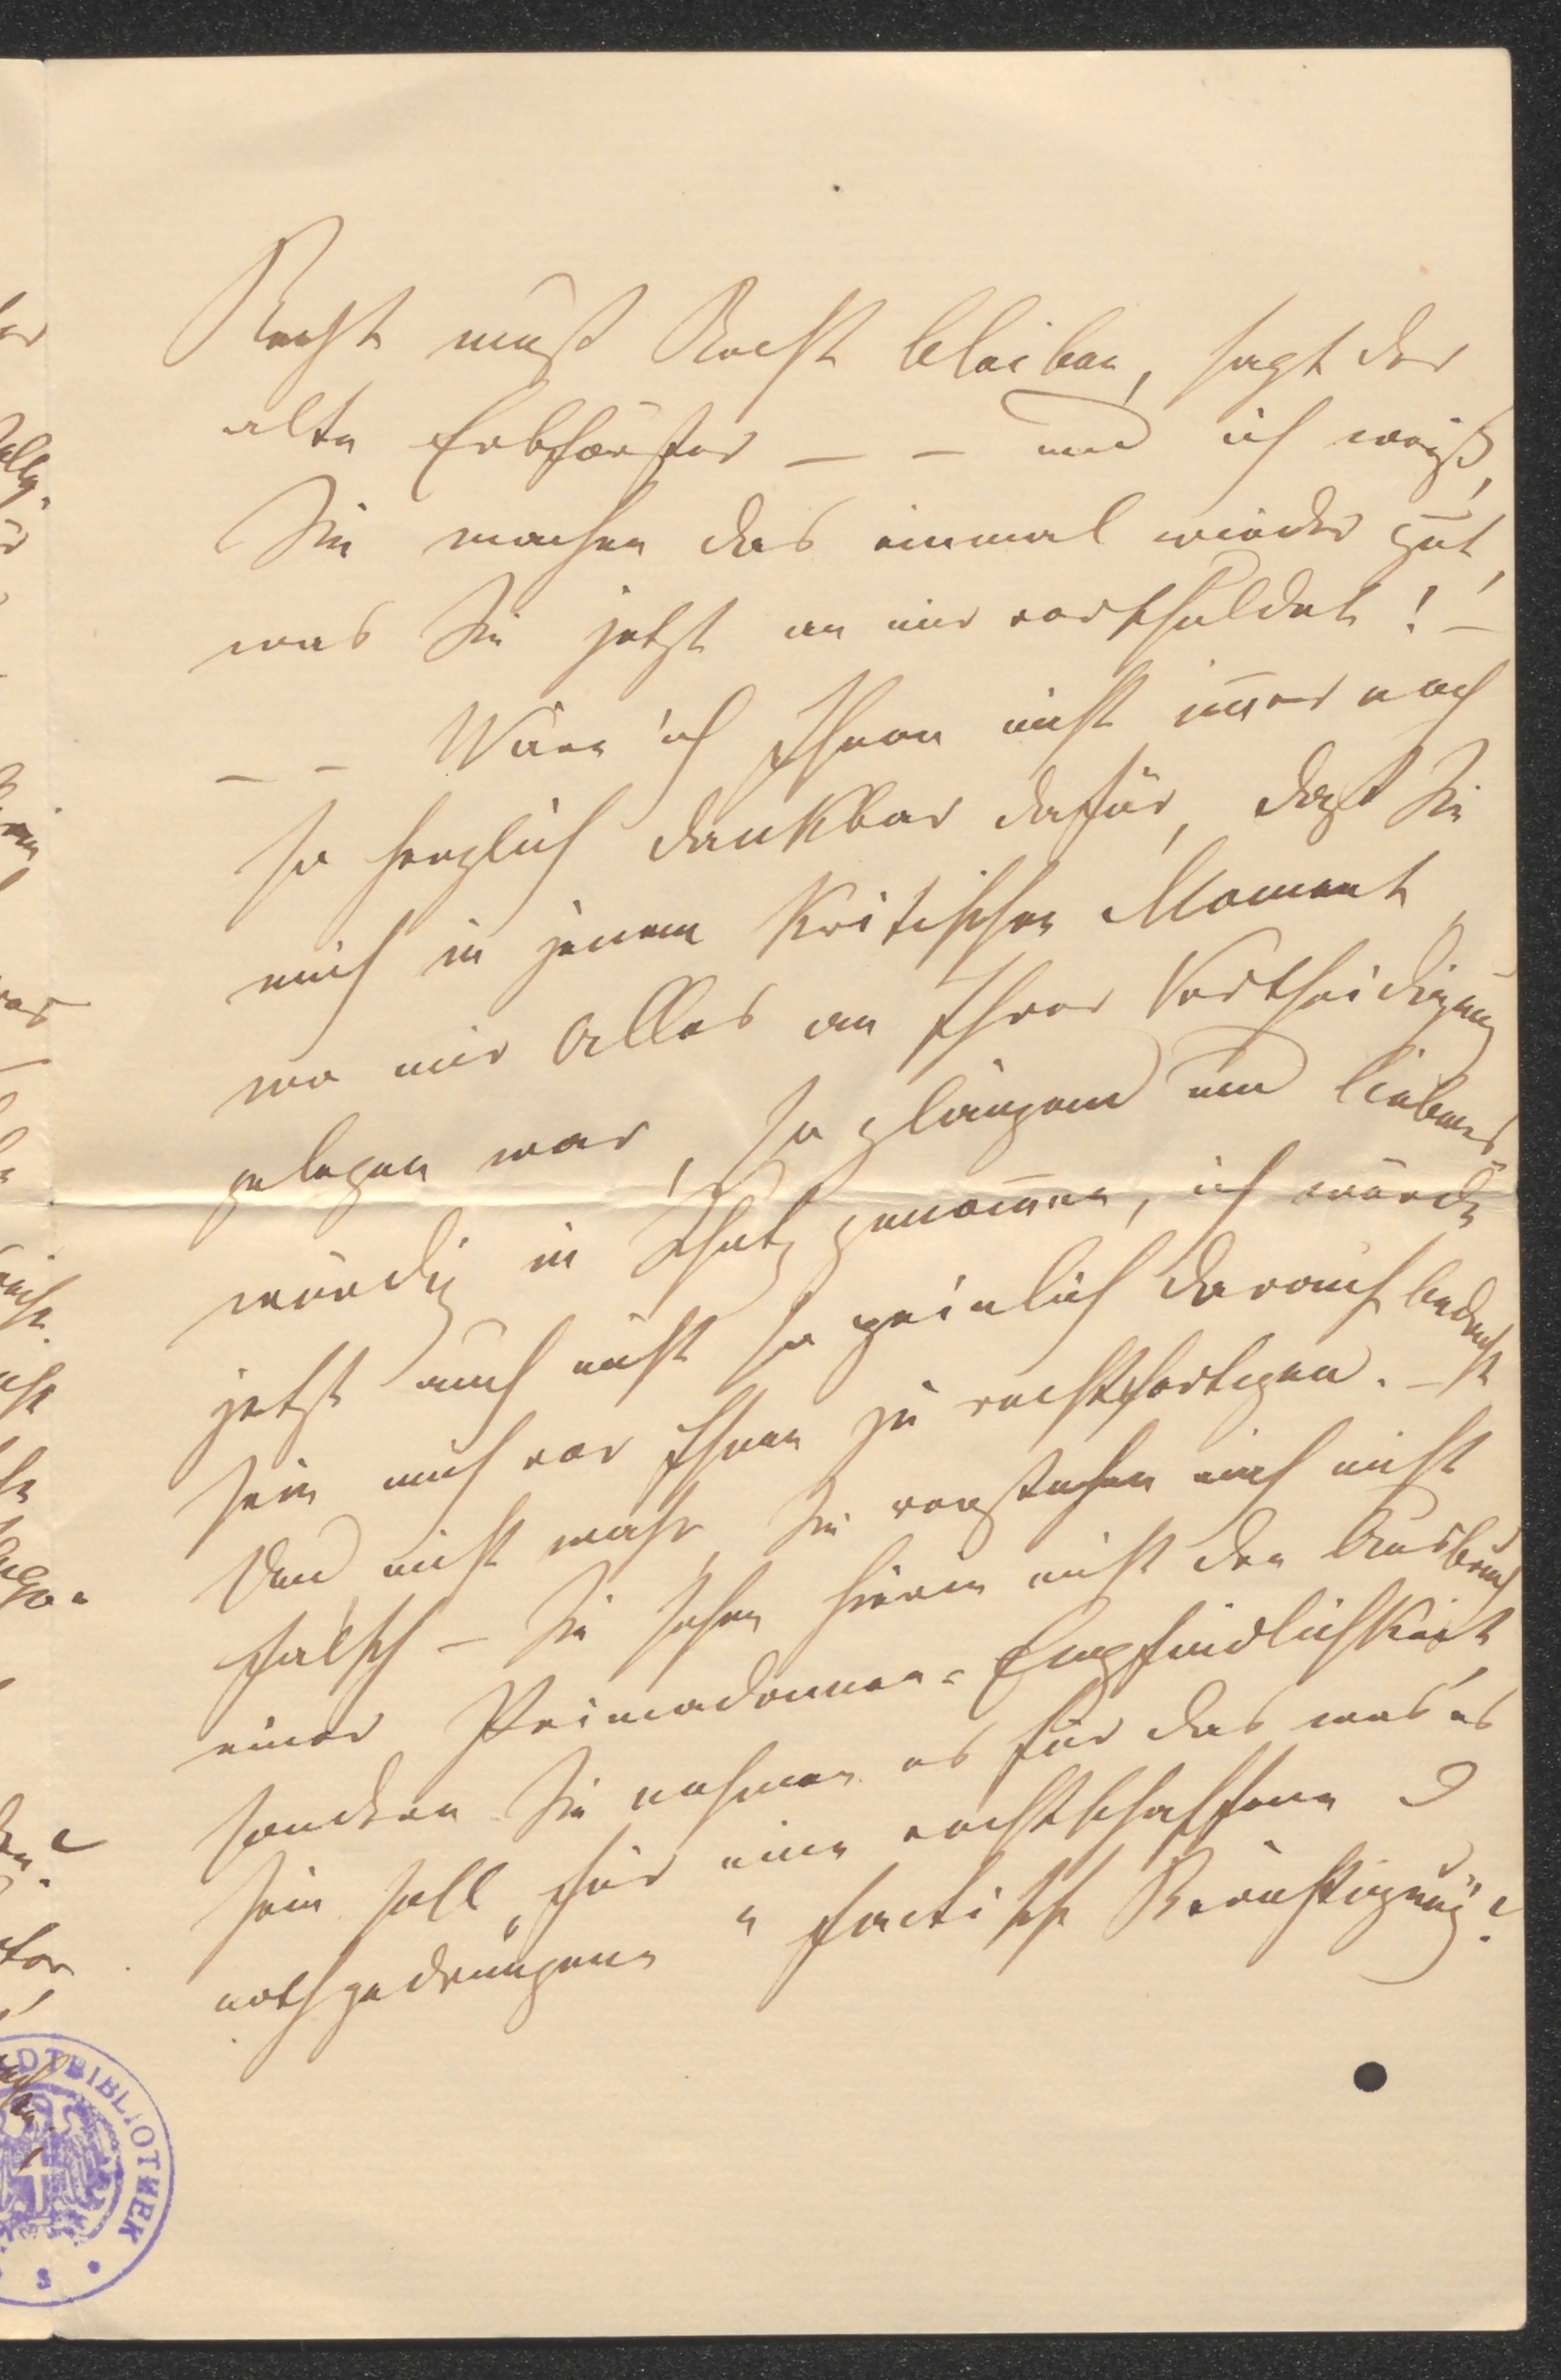 Recht muß Recht bleiben, sagt der
alte Erbförster — — und ich weiß,
Sie machen das einmal wieder gut,
was Sie jetzt an mir verschuldet! —
— — Wäre ich Ihnen nicht im̅er noch
so herzlich dankbar dafür, daß Sie
mich in jenem kritischen Moment,
wo mir Alles an Ihrer Vertheidigung
gelegen war, so glänzend und liebens-
würdig in Schutz genom̅en, ich würde
jetzt auch nicht so peinlich darauf bedacht
sein mich vor Ihnen zu rechtfertigen. —
Und nicht wahr, Sie verstehen mich nicht
falsch — Sie sehen hierin nicht den Ausbruch
einer Primadonnen-Empfindlichkeit,
sondern Sie nehmen es für das was es
sein soll, für eine rechtschaffene &
nothgedrungene "factische Berichtigung"?
DTBIBLIOTHEK